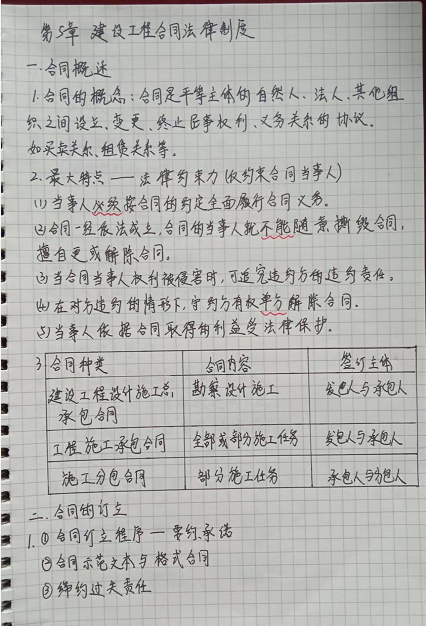 第5章 建设工程合同法律制度
一.合同概述
1.合同的概念：合同是平等主体的自然人、法人、其他组
织之间设立、变更、终止民事权利、义务关系的协议。
如买卖关系、租赁关系等。
2.最大特点——法律约束力(仅约束合同当事人)
(1)当事人必须按合同的约定全面履行合同义务。
(2)合同一经依法成立,合同的当事人就不能随意撕毁合同,
擅自更或解除合同。
(3)当合同当事人权利被侵害时,可追究违约方的违约责任。
(4)在对方违约的情形下,守约方有权单方解除合同.
(5)当事人依据合同取得的利益受法律保护.
3 合同种类 合同内容 签订主体
建设工程设计施工总, 勘察设计施工 发包人与承包人
承包合同
工程施工承包合同 全部或部分施工任务 发包人与承包人
施工分包合同 部分施工任务 承包人与分包人
二.合同的订立
1.①合同订立程序—要约.承诺
②合同示范文本与格式合同
③缔约过失责任